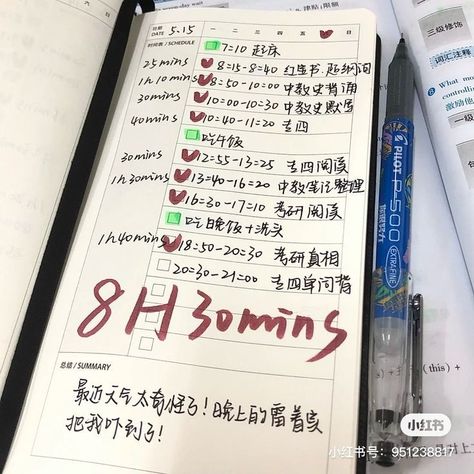 日期 DATE 5.15 一 二 三 四 五 六
时间表 / SCHEDULE 7:10 起床
25 mins 8:15-8:40 红宝书·超纲词
1h 10 mins 8:50-10:00 中教史背诵
30mins 10:00-10:30 中教史默写
40mins 10:40-11:20 专四
吃午饭
30 mins 12:55-13:25 专四阅读
1h 30mins 13:40-16:20 中教笔记整理
16:30-17:10 考研阅读
吃晚饭+洗头
1h 40mins 18:50-20:30 考研真相
20:30-21:00 专四单词背
8H 30mins
总结 / SUMMARY
最近天气太奇怪了!晚上的雷着实
把我吓到了!
PILOT P-500
EXTRA FINE
三级修饰
词汇注释
What
controlling
激励他
(this) +
小红书
小红书号:951238817